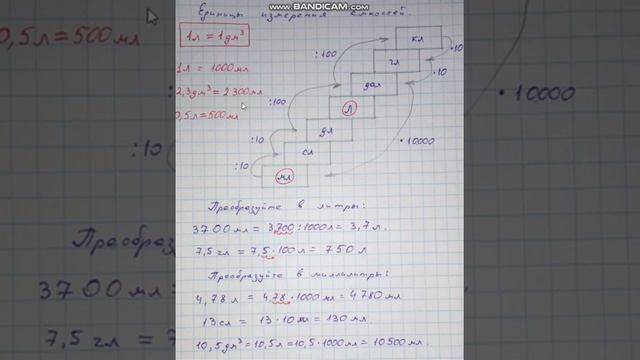 www.BANDICAM.com
Единицы измерения емкостей.
1л = 1дм³
1л = 1000мл
2,3дм³ = 2300мл
0,5л = 500мл
кл
гл
дал
л
дл
сл
мл
:100
:100
:10
:10
·10
·10
·10000
Преобразуйте в литры:
3700мл = 3700:1000л = 3,7л.
7,5гл = 7,5·100л = 750л
Преобразуйте в миллилитры:
4,78л = 4,78·1000мл = 4780мл
13сл = 13·10мл = 130мл
10,5дм³ = 10,5л = 10,5·1000мл = 10500мл.
0,5л = 500мл
·10000
Преобразуй
3700мл =
7,5гл = 7